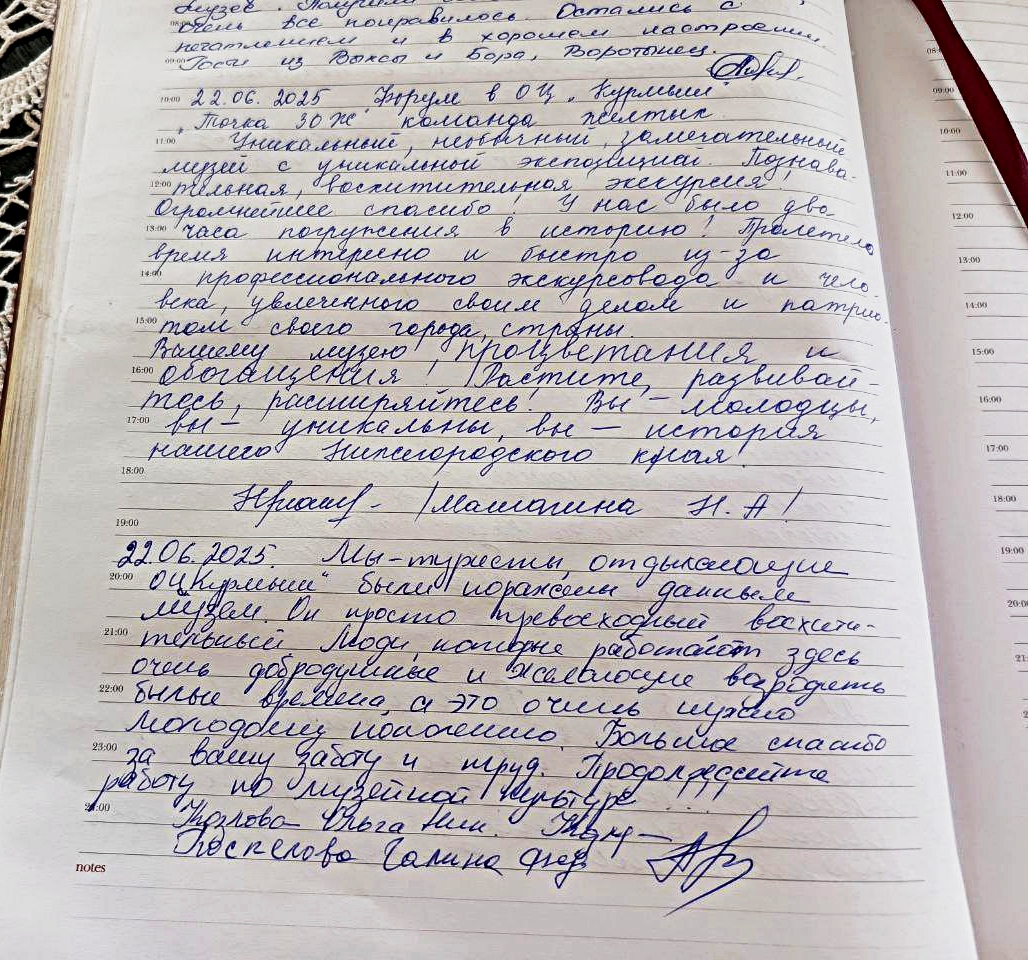 музев. Получили
очень все понравилось. Остались с
печатлением и в хорошем настроении.
Гости из Выксы и Бора, Воротынец.
22.06.2025 Форум в ОЦ „Курмыш"
„Точка ЗОЖ" команда желтых
Уникальный, необычный, замечательный
музей с уникальной экспозицией. Познава-
тельная, восхитительная экскурсия!
Огромнейшее спасибо! У нас было два
часа погружения в историю! Пролетело
время интересно и быстро из-за
профессионального экскурсовода и чело-
века, увлеченного своим делом и патрио-
том своего города, страны.
Вашему музею процветания и
обогащения! Растите, развивай-
тесь, расширяйтесь! Вы — молодцы,
вы — уникальны, вы — история
нашего Нижегородского края!
/Машагина Н.А/
22.06.2025. Мы-туристы, отдыхающие
ОЦ„Курмыш" были поражены данным
музеем. Он просто превосходный восхити-
тельный. Люди, которые работают здесь
очень добродушные и желающие возродить
былые времена, а это очень нужно
молодому поколению. Большое спасибо
за вашу заботу и труд. Продолжайте
работу по музейной культуре...!!!
Козлова Ольга Ник.
Поспелова Галина Фед
08:00
09:00
10:00
11:00
12:00
13:00
14:00
15:00
16:00
17:00
18:00
19:00
20:00
21:00
22:00
23:00
24:00
notes
08:
09:00
10:00
11:00
12:00
13:00
14:00
15:00
16:00
17:00
18:00
19:00
20:00
21:
2